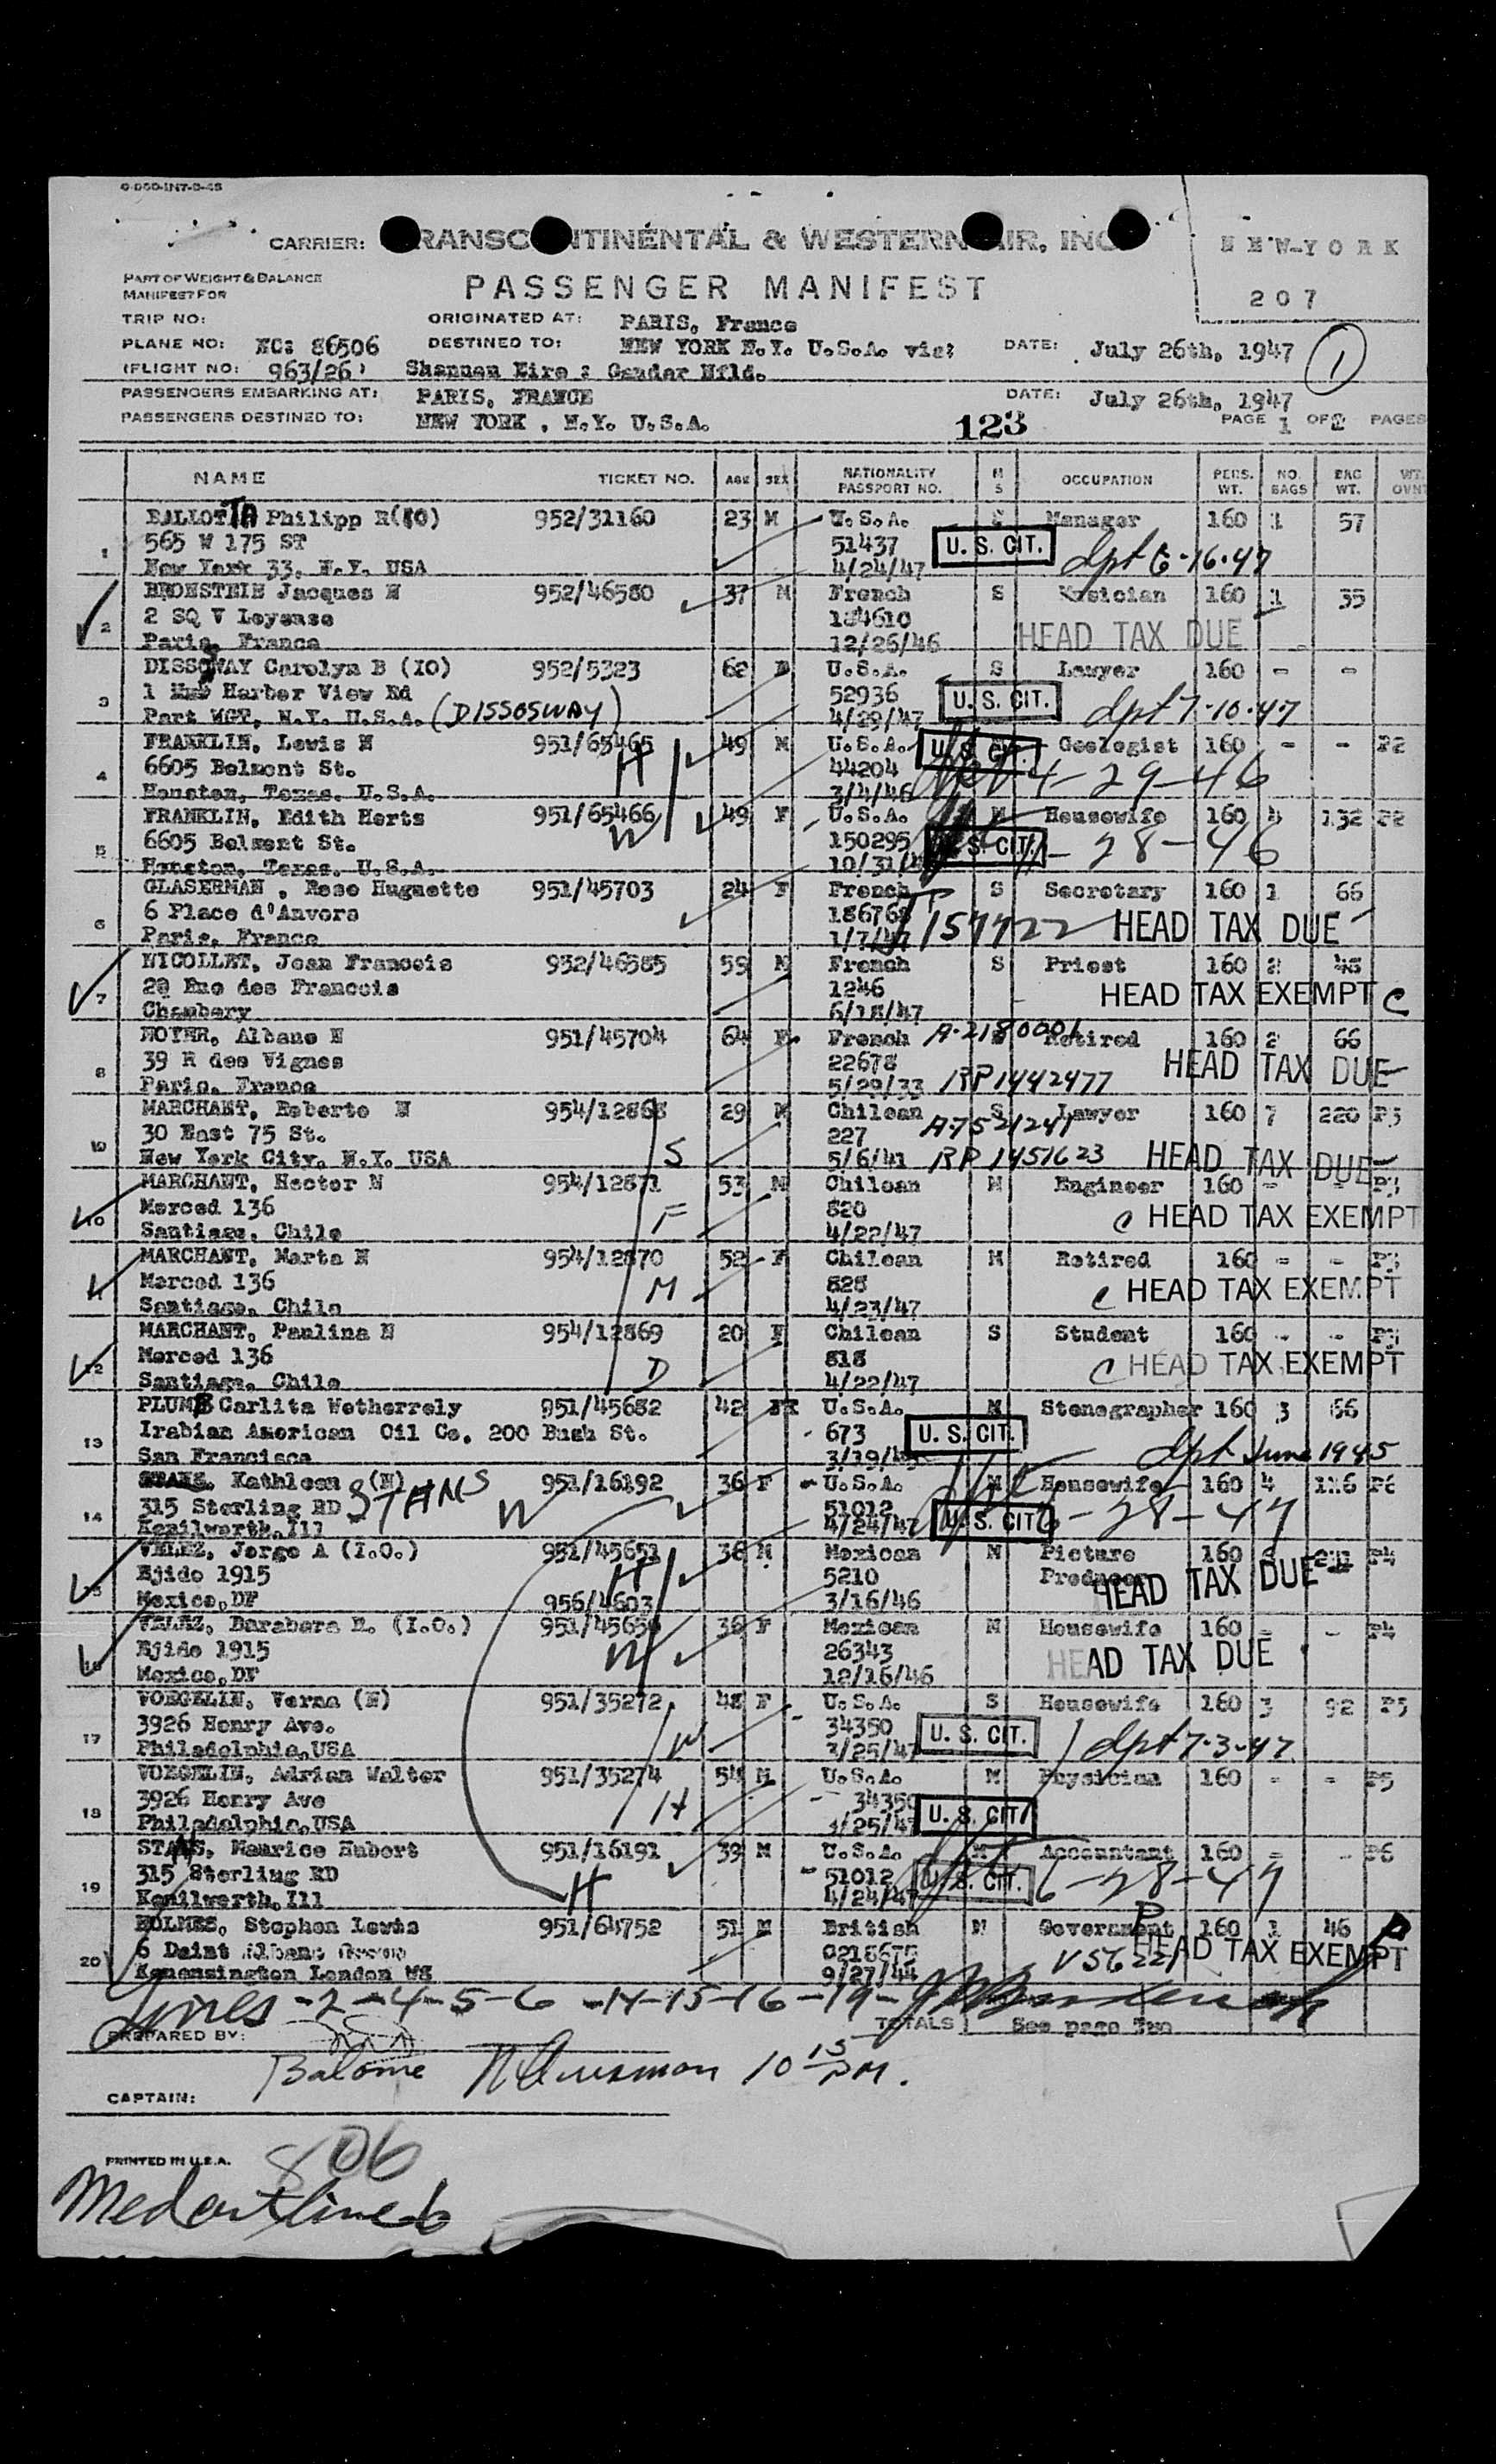 CARRIER: TRANSCONTINENTAL & WESTERN AIR, INC
NEW-YORK
PART OF WEIGHT & BALANCE
MANIFEST FOR
PASSENGER MANIFEST
207
TRIP NO:
ORIGINATED AT: PARIS, France
PLANE NO: NC: 86506
DESTINED TO: NEW YORK N.Y. U.S.A. via:
DATE: July 26th, 1947
1
(FLIGHT NO: 963/26)
Shannon Eire : Gander Nfld.
PASSENGERS EMBARKING AT: PARIS, FRANCE
DATE: July 26th, 1947
PASSENGERS DESTINED TO: NEW YORK, N.Y. U.S.A.
123
PAGE 1 OF 2 PAGES
NAME TICKET NO. AGE SEX NATIONALITY PASSPORT NO. M S OCCUPATION PERS. WT. NO. BAGS BAG WT. WT.
1 BALLOTTA Philipp R(IO) 952/31160 23 M U.S.A. S Manager 160 1 57
565 W 175 ST 51437 U. S. CIT. dpt 6-16-47
New York 33, N.Y. USA 4/24/47
2 BRONSTEIN Jacques N 952/46580 37 M French S Musician 160 1 35
2 SQ V Loyense 134610
Paris, France 12/26/46 HEAD TAX DUE
3 DISSOWAY Carolyn B (IO) 952/5323 62 U.S.A. S Lawyer 160 - -
1 Harbor View Rd 52936 U. S. CIT. dpt 7-10-47
Port WGT, N.Y. U.S.A. (DISSOSWAY) 4/29/47
4 FRANKLIN, Lewis N 951/65465 49 M U.S.A. U. S. CIT. Geologist 160 - - P2
6605 Belmont St. H 44204 4-29-46
Houston, Texas. U.S.A. 3/4/46
5 FRANKLIN, Edith Herts 951/65466 49 F U.S.A. M Housewife 160 4 132 P2
6605 Belmont St. W 150295 U. S. CIT. 28-46
Houston, Texas. U.S.A. 10/31/
6 GLASERMAN, Rose Huguette 951/45703 24 F French S Secretary 160 1 66
6 Place d'Anvers 186768 HEAD TAX DUE
Paris, France 1/7/47
7 NICOLLET, Jean Francois 952/46585 59 M French S Priest 160 2 48
28 Rue des Francois 1246 HEAD TAX EXEMPT C
Chambery 6/18/47
8 NOYER, Albano N 951/45704 64 French A-2180001 Retired 160 2 66
39 R des Vignes 22678 HEAD TAX DUE
Paris, France 5/29/33 RP 1442477
MARCHANT, Roberto N 954/12868 29 M Chilean S Lawyer 160 7 220 P3
30 East 75 St. 227 A7521241
New York City, N.Y. USA S 5/6/41 RP 1451623 HEAD TAX DUE
10 MARCHANT, Hector N 954/12871 53 M Chilean M Engineer 160 - - P3
Merced 136 F 820 C HEAD TAX EXEMPT
Santiago, Chile 4/22/47
11 MARCHANT, Marta N 954/12870 52 F Chilean M Retired 160 - - P3
Merced 136 M 828 C HEAD TAX EXEMPT
Santiago, Chile 4/23/47
12 MARCHANT, Paulina N 954/12869 20 F Chilean S Student 160 - - P3
Merced 136 D 818 C HEAD TAX EXEMPT
Santiago, Chile 4/22/47
13 PLUMB Carlita Wetherrely 951/45682 42 U.S.A. M Stenographer 160 3 66
Irabian American Oil Co. 200 Bush St. 673 U. S. CIT.
San Francisco dpt June 1945
14 Kathleen (N) STANS 951/16192 36 F U.S.A. M Housewife 160 4 126 P6
315 Sterling RD W 51012
Kenilworth, Ill 4/24/47 U. S. CIT. 6-28-47
15 VELEZ, Jorge A (I.O.) 951/45651 38 M Mexican M Picture 160 P4
Ejido 1915 H 5210 Producer
Mexico, DF 956/4603 3/16/46 HEAD TAX DUE
16 VELEZ, Barabara E. (I.O.) 951/45650 36 F Mexican M Housewife 160 - - P4
Ejido 1915 W 26343 HEAD TAX DUE
Mexico, DF 12/16/46
17 VOEGELIN, Verna (N) 951/35272 48 F U.S.A. S Housewife 160 3 92 P5
3926 Henry Ave. 34350 U. S. CIT. dpt 7-3-47
Philadelphia, USA W 3/25/47
18 VOEGELIN, Adrian Walter 951/35274 54 M U.S.A. M Physician 160 - - P5
3926 Henry Ave H 34350
Philadelphia, USA 3/25/47 U. S. CIT.
19 STANS, Maurice Hubert 951/16191 39 M U.S.A. M Accountant 160 - - P6
315 Sterling RD 51012 U. S. CIT. 6-28-47
Kenilworth, Ill H 4/24/47
20 HOLMES, Stephen Lewis 951/64752 51 M British M Government 160 1 46
6 Daint Albans Grove HEAD TAX EXEMPT
Kenensington London W8 9/27/44
Lines -2-4-5-6-14-15-16-19-
TOTALS See page Two
PREPARED BY:
10 15 PM.
CAPTAIN:
PRINTED IN U.S.A.
806